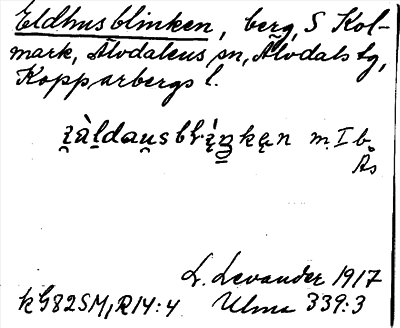 Eldhusblinken, berg, S Kol-
mark, Älvdalens sn, Älvdals tg,
Kopparbergs l.
m. I b.
Ås
L. Levander 1917
kG82SM, R14:4 Ulma 339:3